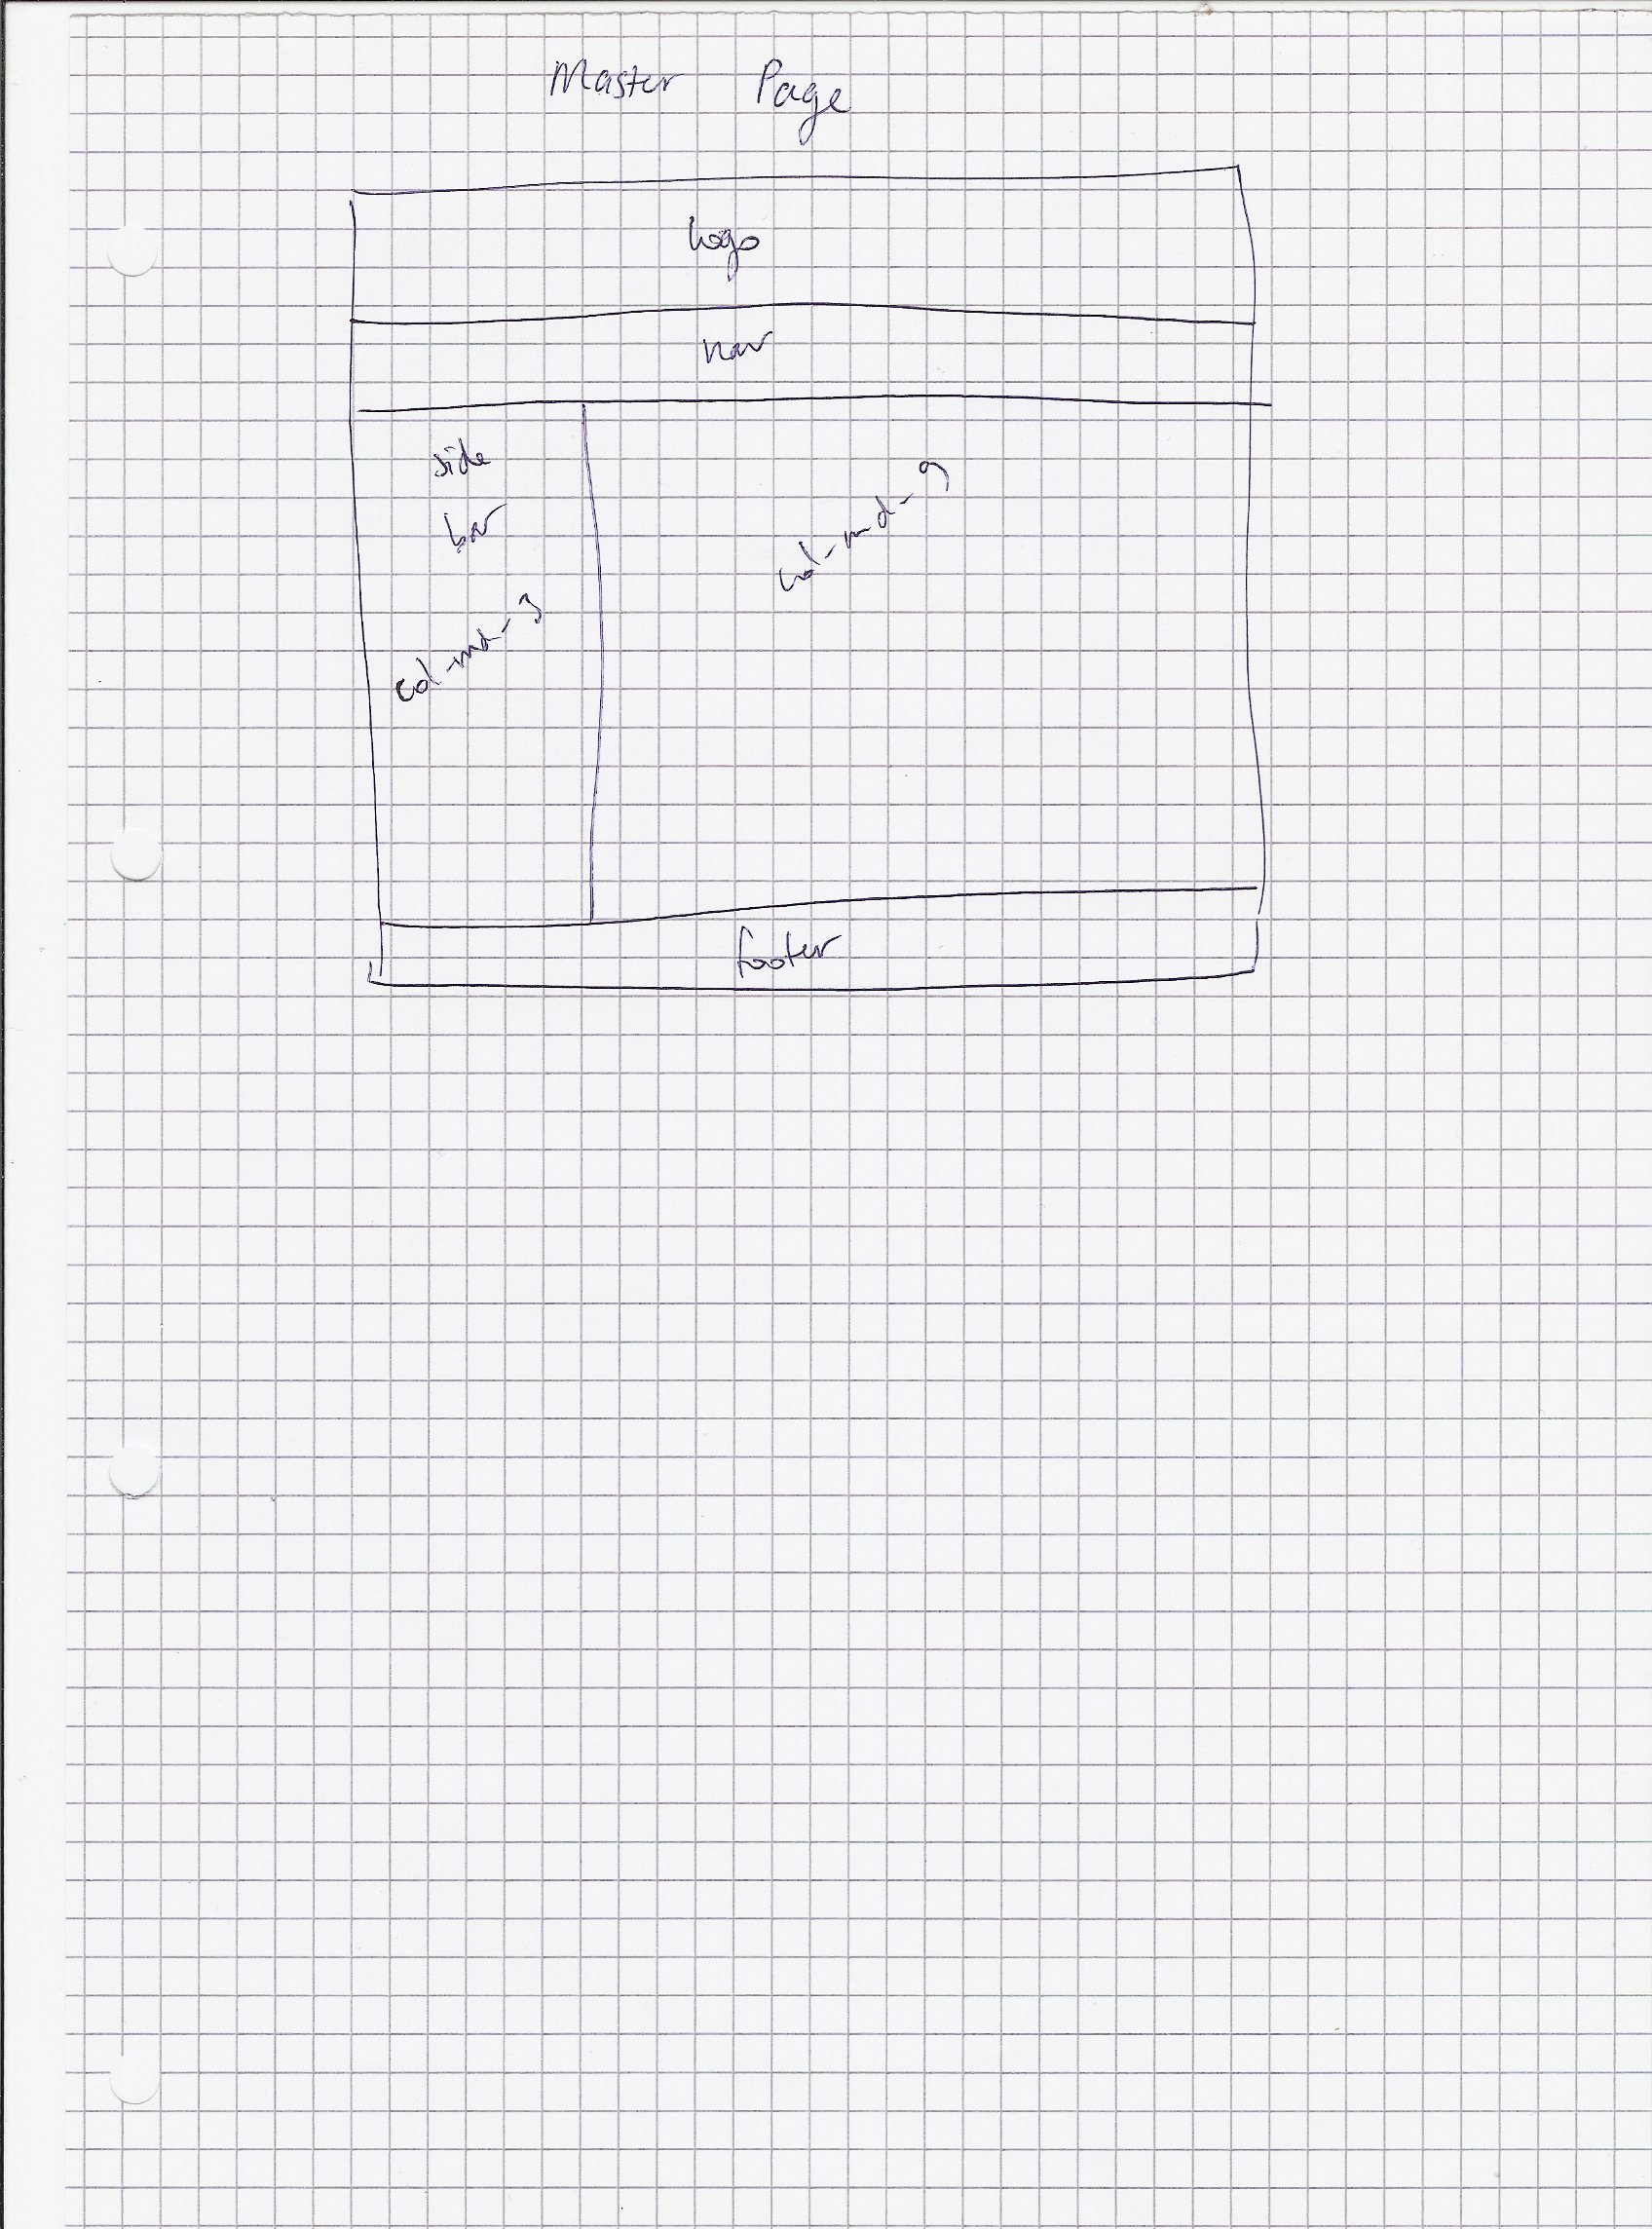 Master Page
Logo
nav
side
bar
col-md-3
col-md-9
footer